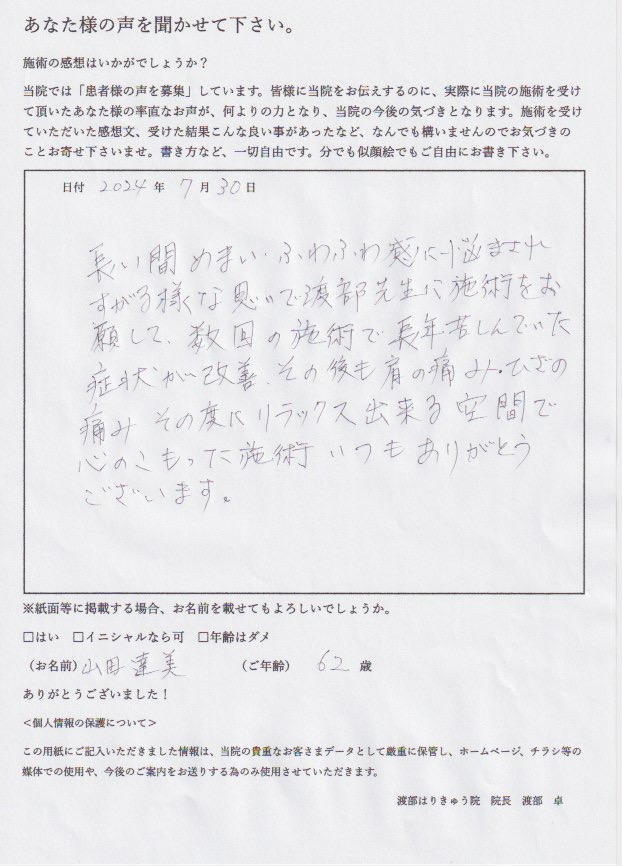 あなた様の声を聞かせて下さい。
施術の感想はいかがでしょうか？
当院では「患者様の声を募集」しています。皆様に当院をお伝えするのに、実際に当院の施術を受け
て頂いたあなた様の率直なお声が、何よりの力となり、当院の今後の気づきとなります。施術を受け
ていただいた感想文、受けた結果こんな良い事があったなど、なんでも構いませんのでお気づきの
ことお寄せ下さいませ。書き方など、一切自由です。分でも似顔絵でもご自由にお書き下さい。
日付 2024 年 7 月 30 日
長い間めまい・ふわふわ感に悩まされ
すがる様な思いで渡部先生に施術をお
願して、数回の施術で長年苦しんでいた
症状が改善、その後も肩の痛み・ひざの
痛み その度にリラックス出来る空間で
心のこもった施術 いつもありがとう
ございます。
※紙面等に掲載する場合、お名前を載せてもよろしいでしょうか。
□はい □イニシャルなら可 □年齢はダメ
（お名前）山田達美 （ご年齢） 62 歳
ありがとうございました！
＜個人情報の保護について＞
この用紙にご記入いただきました情報は、当院の貴重なお客さまデータとして厳重に保管し、ホームページ、チラシ等の
媒体での使用や、今後のご案内をお送りする為のみ使用させていただきます。
渡部はりきゅう院 院長 渡部 卓